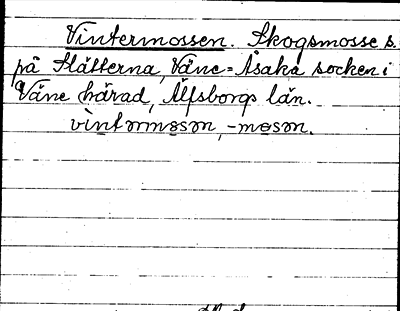 Vintermossen. Skogsmosse s.
på Slätterna, Väne-Åsaka socken i
Väne härad, Älfsborgs län.
vintərmɷsən, -mɷsən.